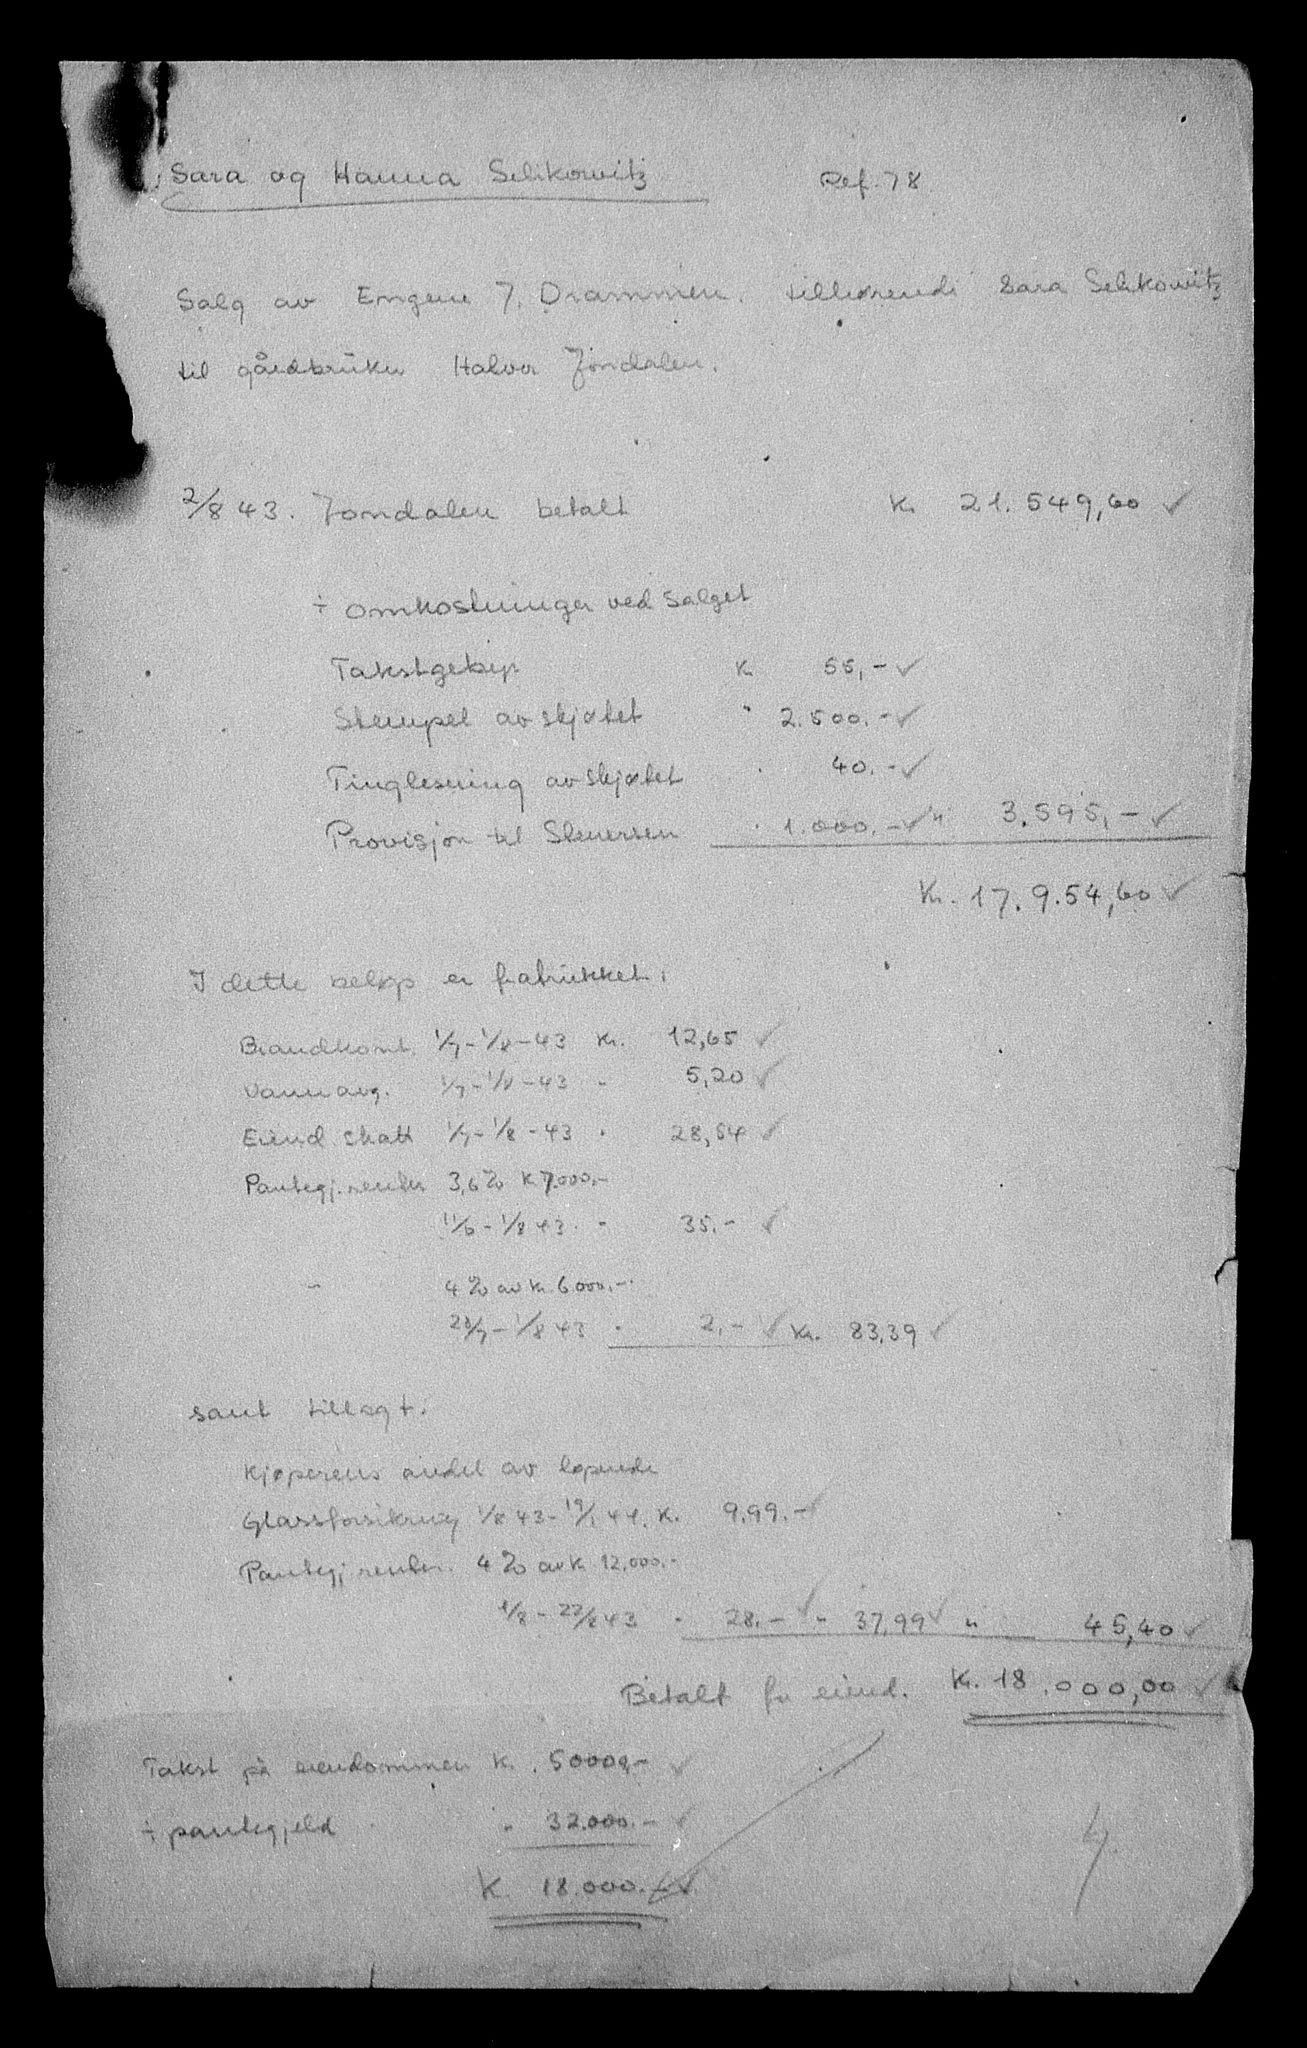 Sara og Hanna Selikowitz Ref. 78
Salg av Engene 7, Drammen. tilhørende Sara Selikowitz
til gårdbruker Halvor Jondalen.
2/8 43. Jondalen betalt Kr. 21.549,60 ✓
÷ omkostninger ved salget
Takstgebyr Kr. 55,- ✓
Stempel av skjøtet " 2.500.- ✓
Tinglesning av skjøtet " 40.- ✓
Provisjon til Stenersen " 1.000.- ✓ " 3.595,- ✓
Kr. 17.9.54,60 ✓
I dette beløp er fratrukket:
Brandkont. 1/7-1/8-43 Kr. 12,65 ✓
Vannavg. 1/7-1/8-43 " 5,20 ✓
Eiend. skatt 1/7-1/8-43 " 28,54 ✓
Pantegj. renter 3,6% K 7.000,-
11/6-1/8 43. " 35.- ✓
" 4% av Kr. 6.000.-
23/7-1/8 43 " 2,- ✓ Kr. 83,39 ✓
samt tillagt:
Kjøperens andel av løpende
Glassforsikring 1/8 43-19/1 44. K. 9.99.- ✓
Pantegj renter. 4% av K 12.000.-
1/8-22/8 43 " 28.- ✓ " 37,99 ✓ " 45,40 ✓
Betalt for eiend. Kr. 18.000,00 ✓
Takst på eiendommen K. 50000,- ✓
÷ pantegjeld " 32.000.- ✓
K. 18.000.- ✓
4